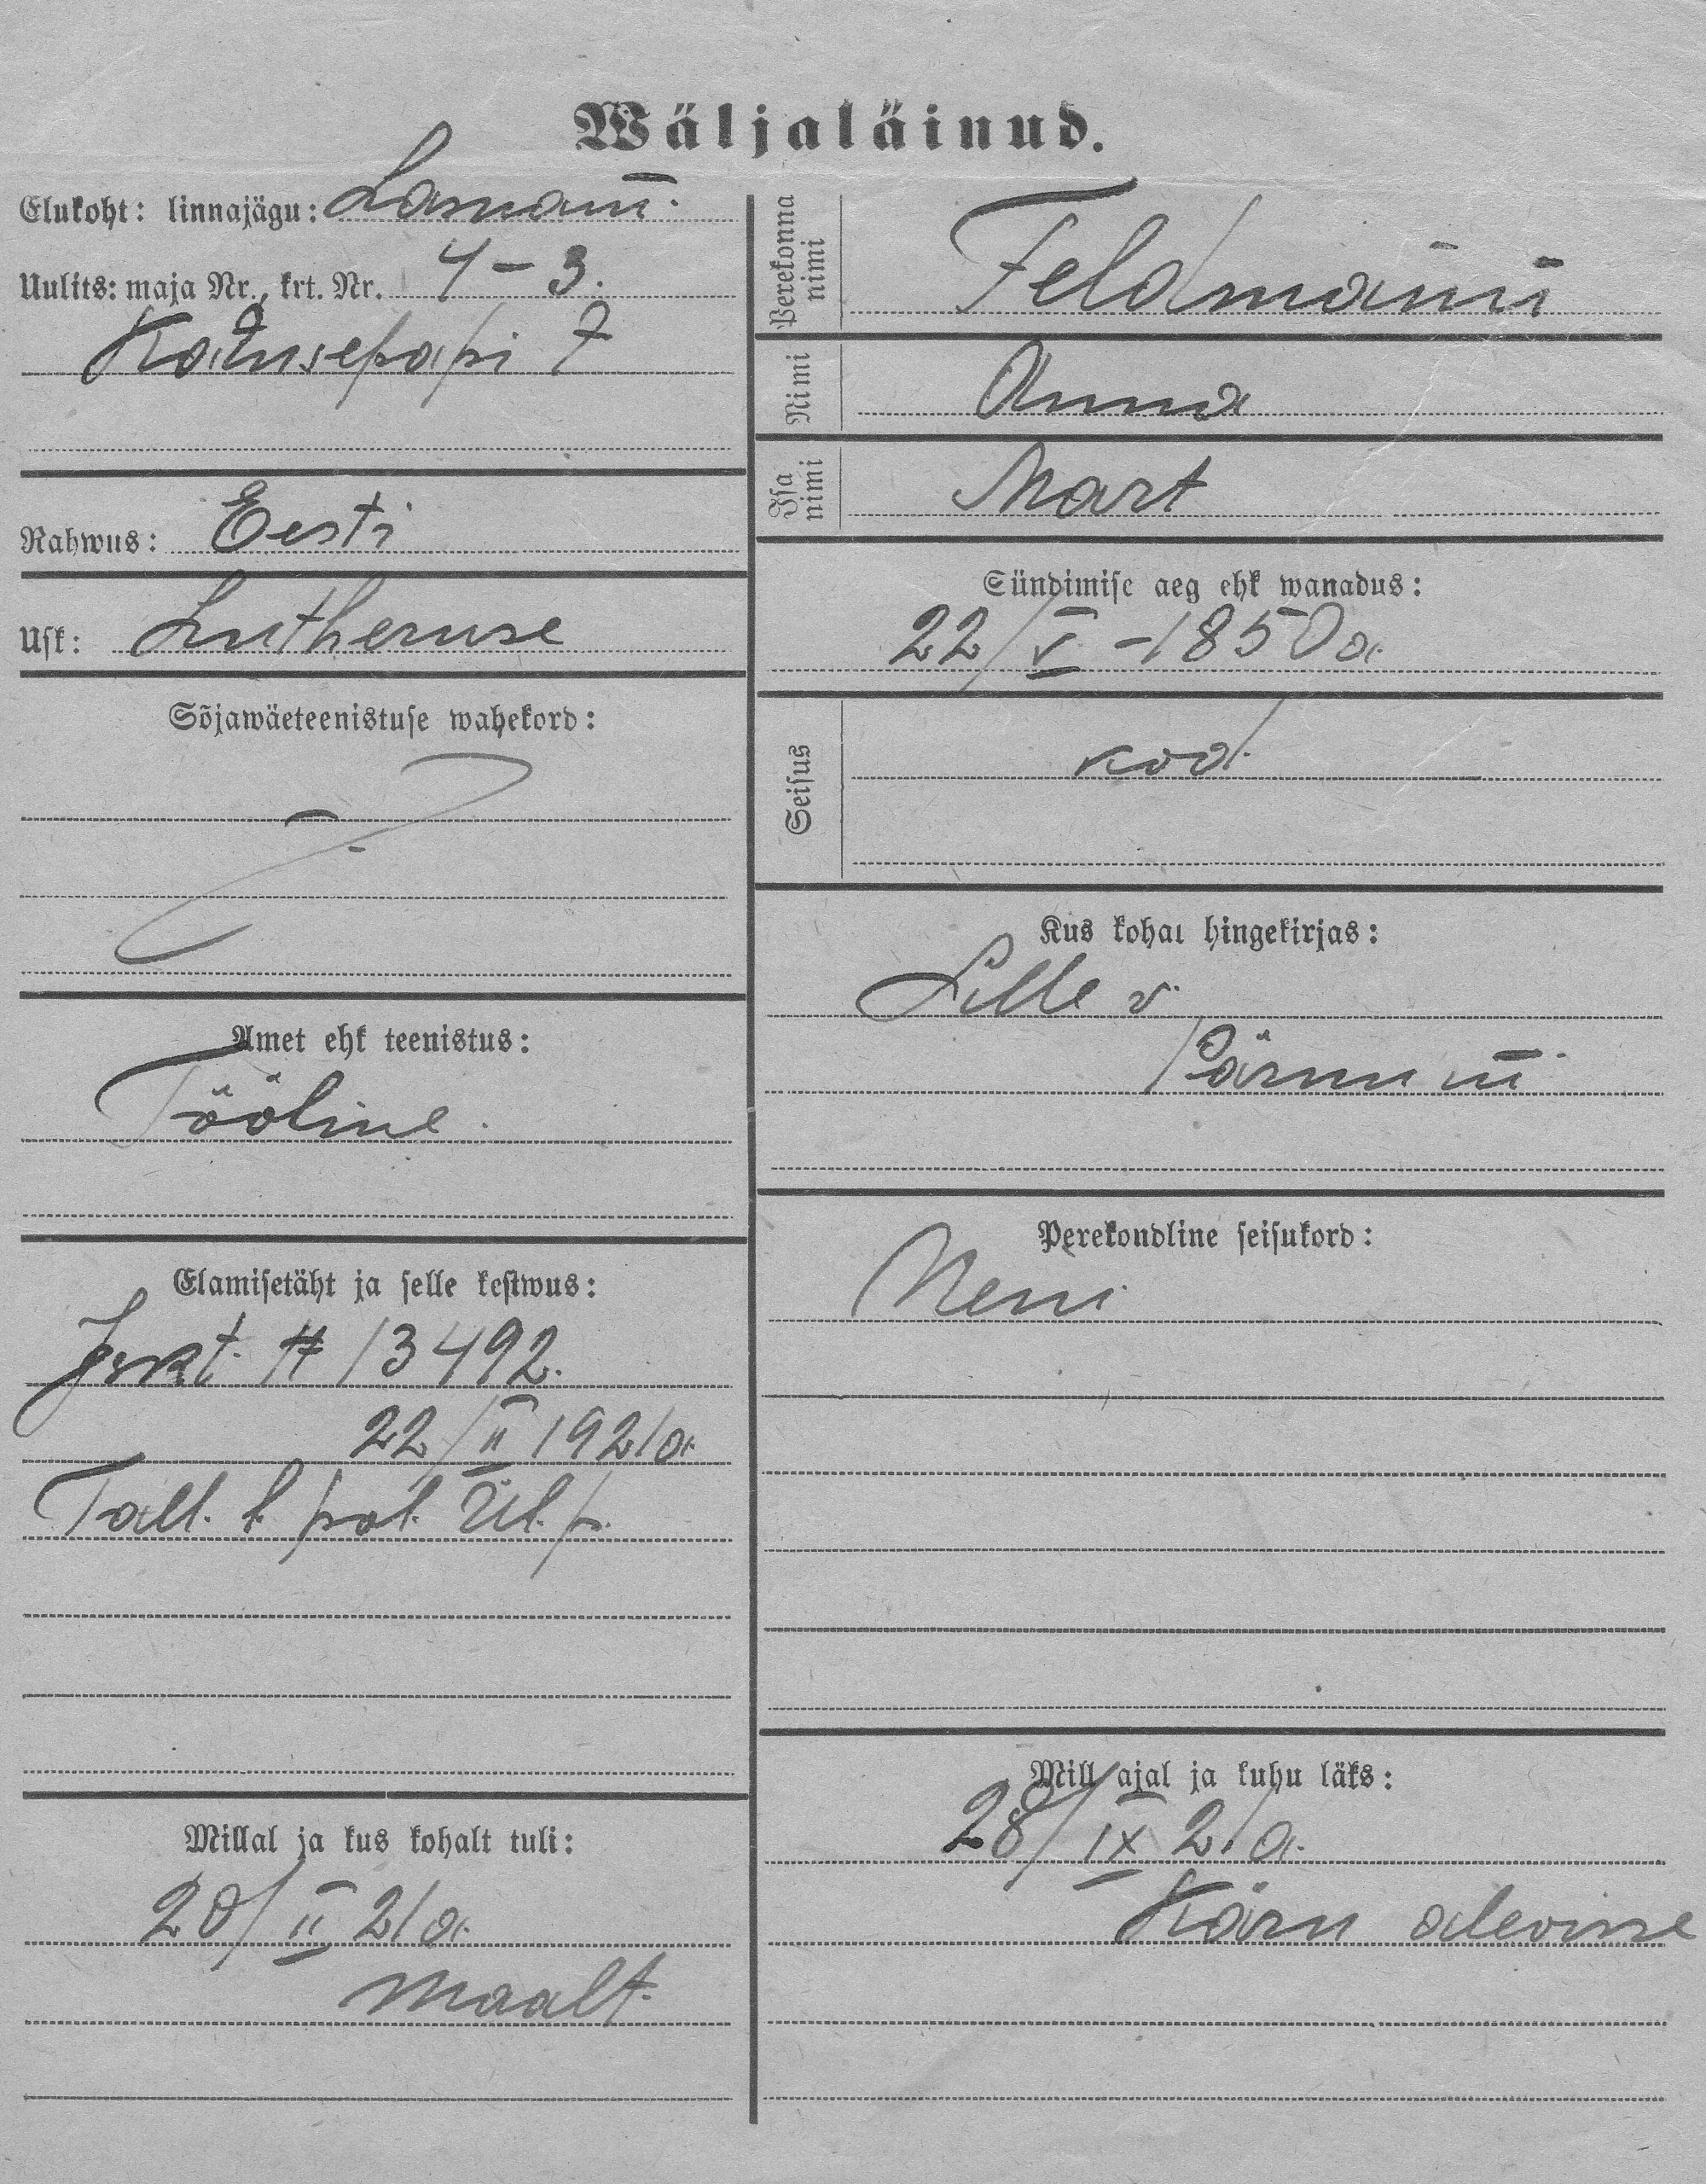 Wäljaläinud.
Elukoht: linnajägu: Lasnam.
Uulits: maja Nr., krt. Nr. 4 – 3.
Katusepapi 7
Rahwus: Eesti
Usk: Lutheruse
Sõjawäeteenistuse wahekord:
Amet ehk teenistus:
Tööline.
Elamisetäht ja selle kestwus:
Iskt. # 13492.
22/II 1921 a.
Tall. l. pol. ül. p.
Millal ja kus kohalt tuli:
20/II 21 a.
maalt.
Perekonna nimi
Feldmann
Nimi
Anna
Isa nimi
Mart
Sündimise aeg ehk wanadus:
22/V – 1850 a.
Seisus
kod.
Kus kohal hingekirjas:
Lelle v.
Pärnu m.
Perekondline seisukord:
Mill ajal ja kuhu läks:
28/IX 21 a.
Käru alevisse